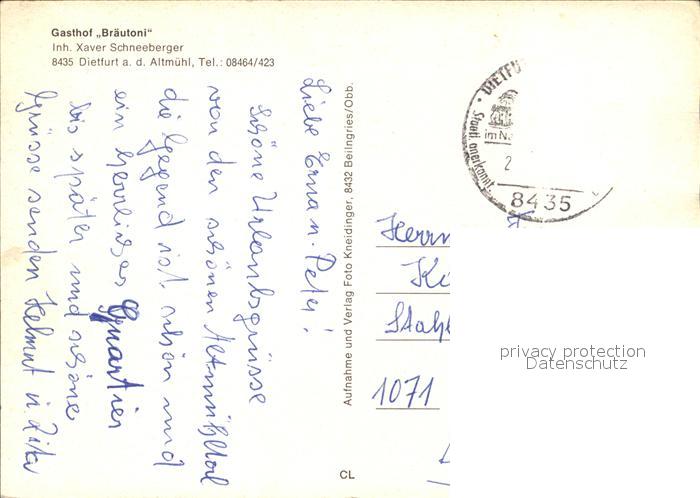 Gasthof „Bräutoni“
Inh. Xaver Schneeberger
8435 Dietfurt a. d. Altmühl, Tel.: 08464/423
Liebe Erna u. Peter!
Schöne Urlaubsgrüsse
von den schönen Altmühltal
die Gegend ist schön und
ein herrliches Quartier
bis später und schöne
Grüsse senden Helmut u. Rita
Aufnahme und Verlag Foto Kneidinger, 8432 Beilngries/Obb.
CL
DIETFU
Staatl. anerkannt.
im N
2
8435
Herrn
Stah
1071
privacy protection
Datenschutz